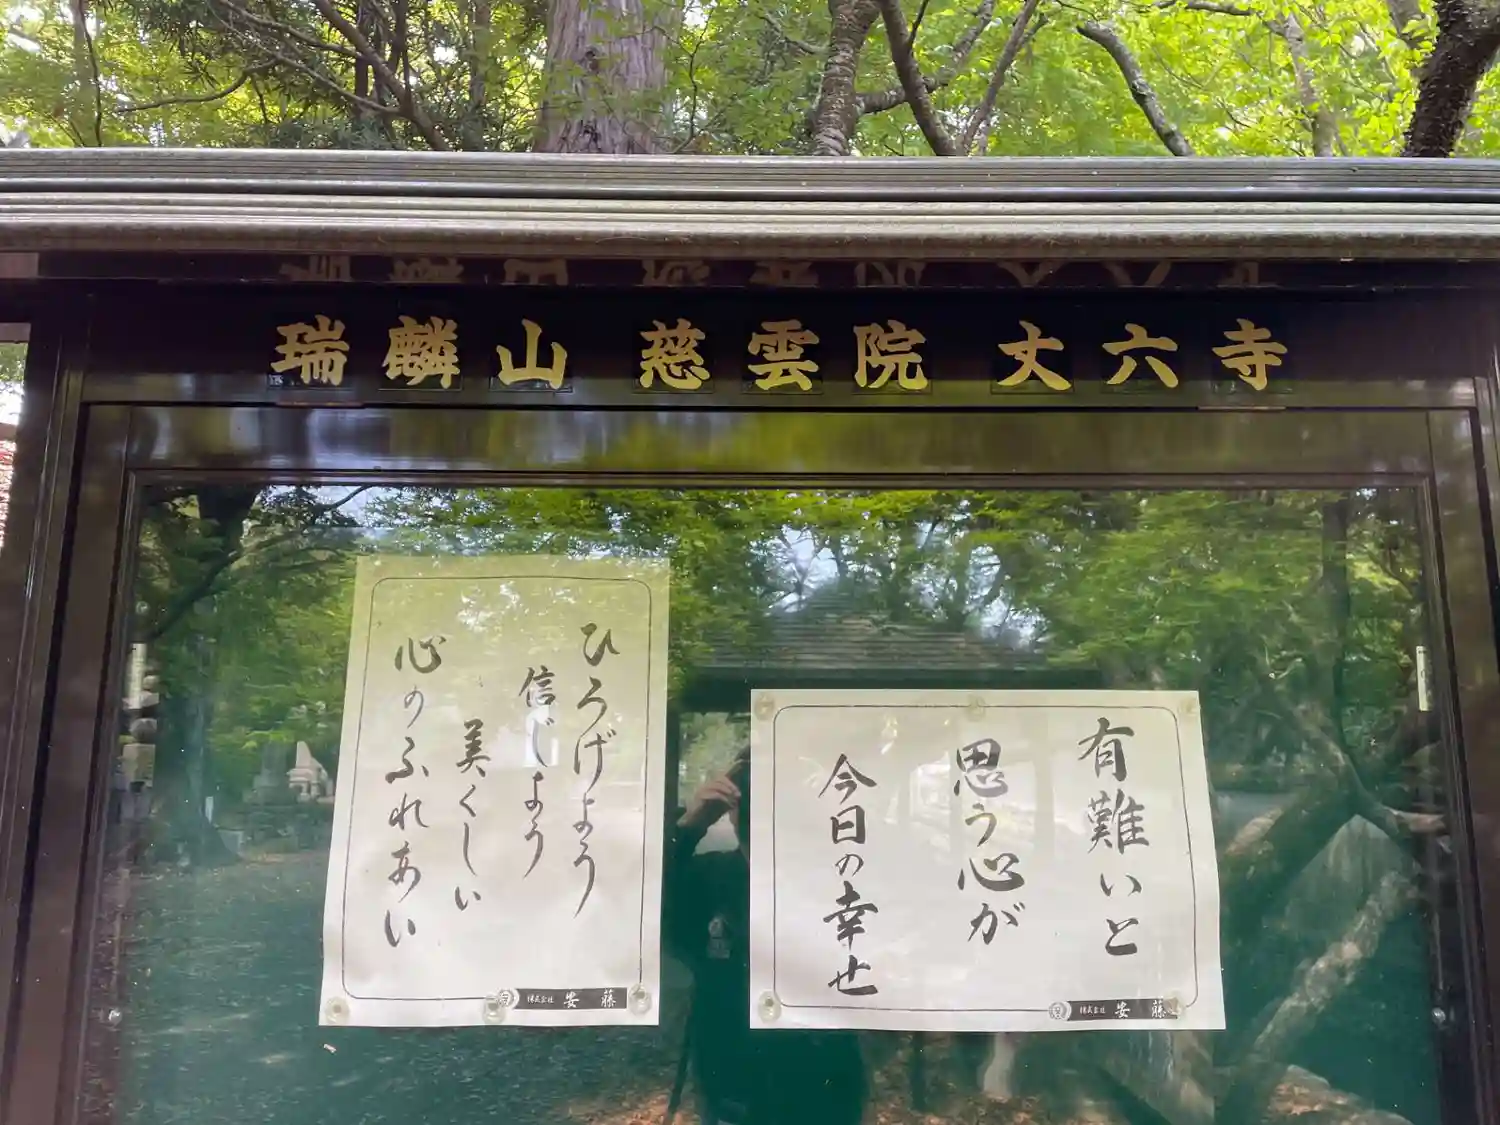 瑞麟山 慈雲院 丈六寺
ひろげよう
信じよう
美くしい
心のふれあい
株式会社 安藤
有難いと
思う心が
今日の幸せ
株式会社 安藤